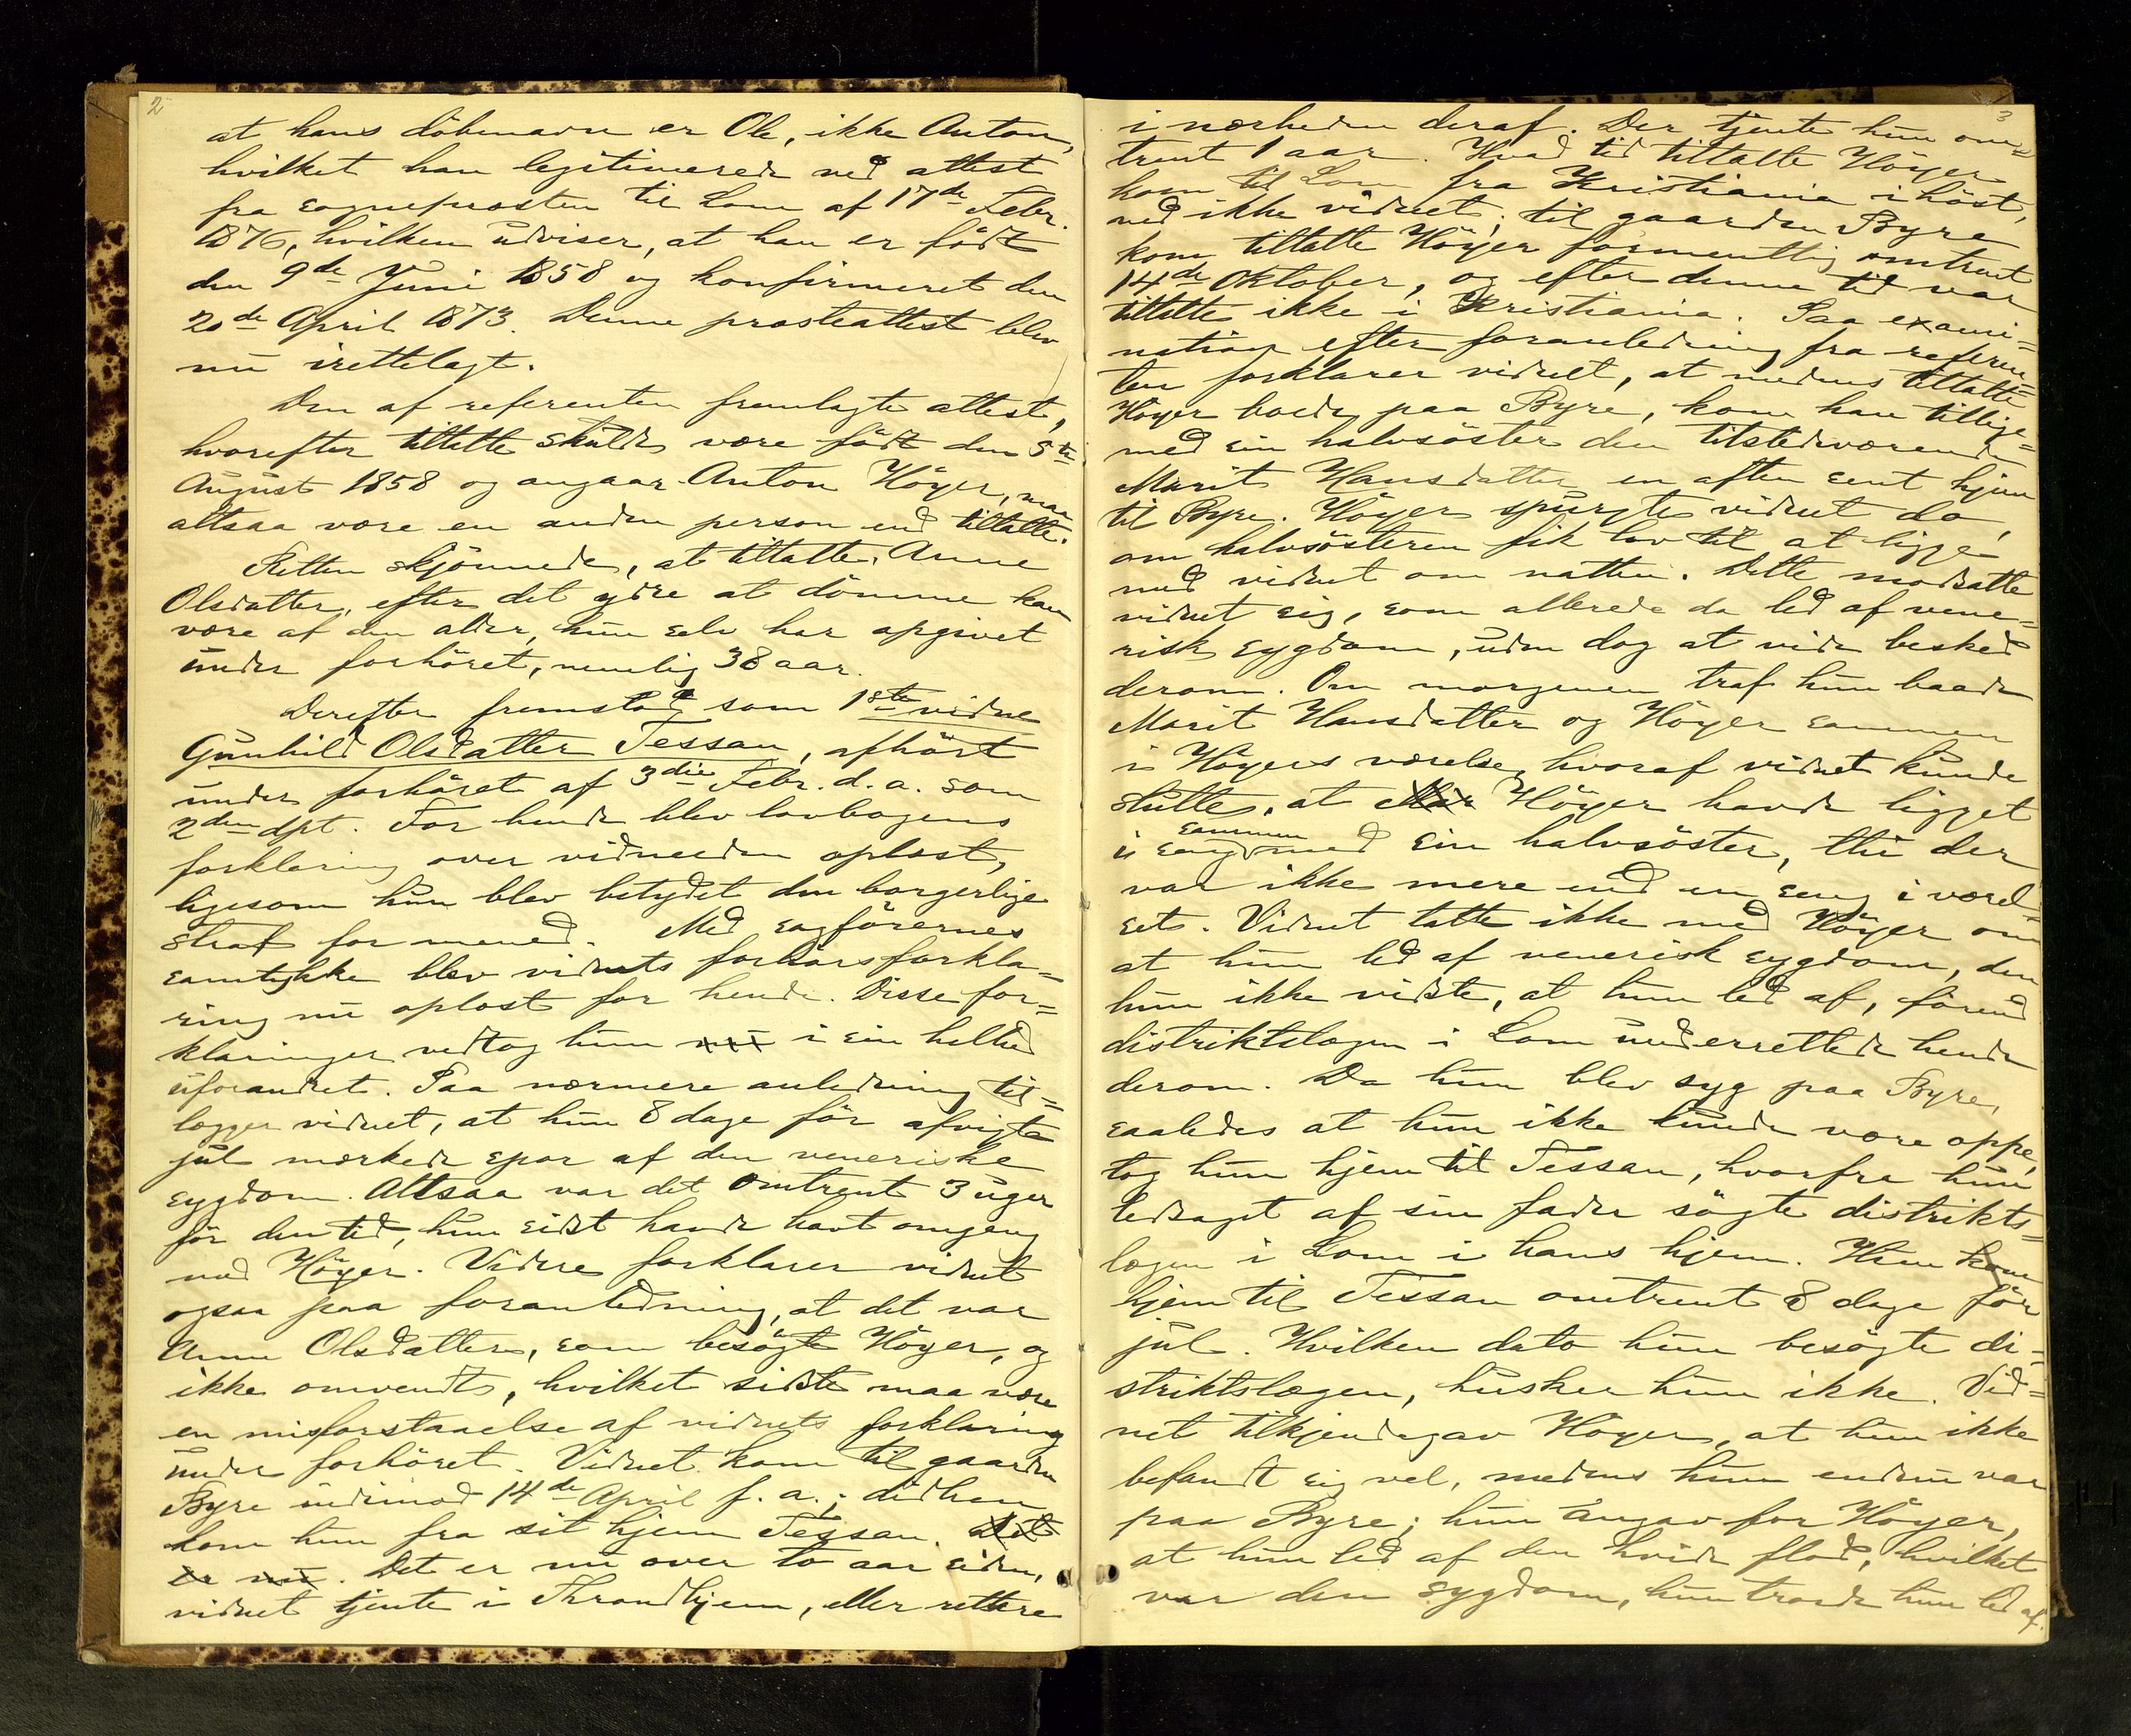 2
at hans döbenavn er Ole, ikke Anton,
hvilket han legitimerede ved attest
fra sogneprosten til Lom af 17de Febr.
1876, hvilken udviser, at han er födt
den 9de Juni 1858 og konfirmeret den
20de April 1873. Denne prosteattest blev
nu irettelagt.
Den af referenten fremlagte attest,
hvorefter tiltalte skulde være födt den 5te
August 1858 og angaar Anton Höyer, maa
altsaa være en anden person end tiltalte.
Retten skjönnede, at tiltalte, Anne
Olsdatter, efter det ydre at dömme kan
være af den alder, hun selv har opgivet
under forhöret, nemlig 38 aar.
Derefter fremstod som 1ste vidne
Gunhild Olsdatter Tessan, afhört
under forhöret af 3die Febr. d. a. som
2den dpt. For hende blev lovbogens
forklaring over vidneeden oplæst,
ligesom hun blev betydet den borgerlige
straf for mened. Med sagförernes
samtykke blev vidnets forhörsforkla=
ring nu oplæst for hende. Disse for=
klaringer vedtog hun nu i sin helhed
uforandret. Paa nærmere anledning til=
lægger vidnet, at hun 8 dage för afvigte
jul mærkede spor af den veneriske
sygdom. Altsaa var det omtrent 3 uger
för den tid, hun sidst havde havt omgang
med Höyer. Videre forklarer vidnet
ogsaa paa foranledning, at det var
Anne Olsdatter, som besögte Höyer, og
ikke omvendt, hvilket sidste maa være
en misforstaaelse af vidnets forklaring
under forhöret. Vidnet kom til gaarden
Byre udimod 14de April f. a.; didhen
kom hun fra sit hjem Tessan. Det
er nu. Det er nu over to aar siden,
vidnet tjente i Throndhjem, eller rettere
3
i nærheden deraf. Der tjente hun om=
trent 1 aar. Hvad tid tiltalte Höyer
kom til Lom fra Kristiania i höst,
ved ikke vidnet; til gaarden Byre
kom tiltalte Höyer formentlig omtrent
14de Oktober, og efter denne tid var
tiltalte ikke i Kristiania. Paa exami=
nation efter foranledning fra referen=
ten forklarer vidnet, at medens tiltalte
Höyer boede paa Byre, kom han tillige=
med sin halvsöster den tilstedeværende
Marit Hansdatter en aften sent hjem
til Byre. Höyer spurgte vidnet da,
om halvsösteren fik lov til at ligge
med vidnet om natten. Dette modsatte
vidnet sig, som allerede da led af vene=
risk sygdom, uden dog at vide besked
derom. Om morgenen traf hun baade
Marit Hansdatter og Höyer sammen
i Höyers værelse, hvoraf vidnet kunde
slutte, at Höyer havde ligget
i seng sammen med sin halvsöster, thi der
var ikke mere end en seng i værel=
set. Vidnet talte ikke med Höyer om
at hun led af venerisk sygdom, den
hun ikke vidste, at hun led af, förend
distriktslægen i Lom underrettede hende
derom. Da hun blev syg paa Byre,
saaledes at hun ikke kunde være oppe,
tog hun hjem til Tessan, hvorfra hun
ledsaget af sin fader sögte distrikts=
lægen i Lom i hans hjem. Hun kom
hjem til Tessan omtrent 8 dage för
jul. Hvilken dato hun besögte di=
striktslægen, husker hun ikke. Vid=
net tilkjendegav Höyer, at hun ikke
befandt sig vel, medens hun endnu var
paa Byre; hun angav for Höyer,
at hun led af den hvide flod, hvilket
var den sygdom, hun troede hun led af.